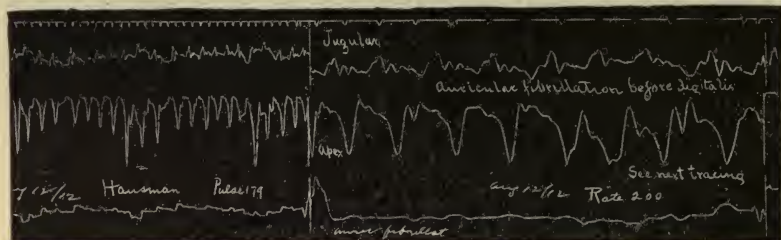 Jugular
auricular fibrillation before digitalis
apex
See next tracing
12/12 Hausman Pulse 179
aug 12/12 Rate 200